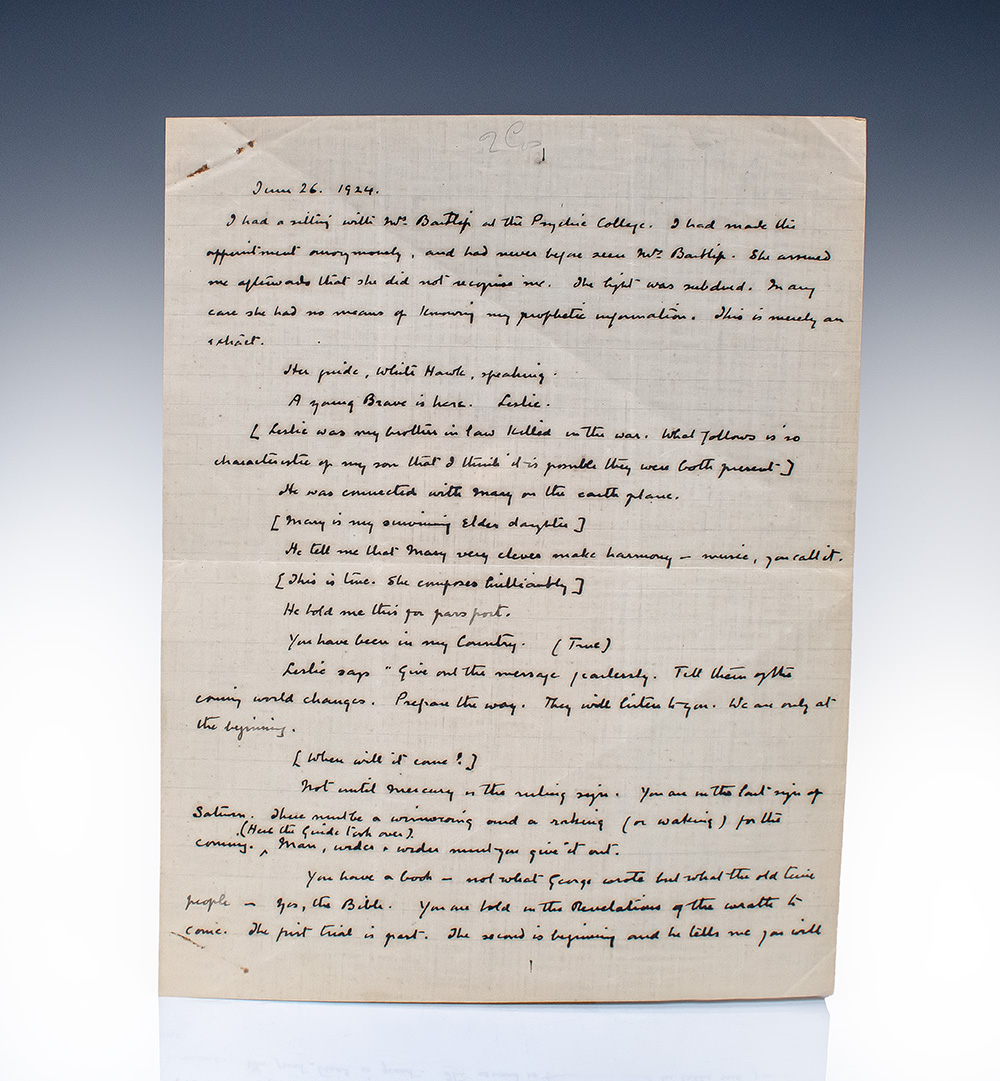 June 26. 1924.
I had a sitting with Mrs. Bartlip at the Psychic College. I had made the
appointment anonymously, and had never before seen Mrs. Bartlip. She assured
me afterwards that she did not recognise me. The light was subdued. In any
case she had no means of knowing my prophetic information. This is merely an
extract.
Her guide, White Hawk, speaking.
A young Brave is here. Leslie.
[Leslie was my brother in law killed in the war. What follows is so
characteristic of my son that I think it is possible they were both present]
He was connected with Mary on the earth plane.
[Mary is my surviving Elder daughter]
He tell me that Mary very clever make harmony – music, you call it.
[This is true. She composes brilliantly]
He told me this for passport.
You have been in my Country. (True)
Leslie says "Give out the message fearlessly. Tell them of the
coming world changes. Prepare the way. They will listen to you. We are only at
the beginning.
[When will it come?]
Not until Mercury is the ruling sign. You are in the last sign of
Saturn. There must be a winnowing and a raking (or waking) for the
(Here the Guide took over).
coming. Man, wider & wider must you give it out.
You have a book – not what George wrote but what the old time
people – yes, the Bible. You are told in the Revelations of the wrath to
come. The first trial is past. The second is beginning and he tells me you will